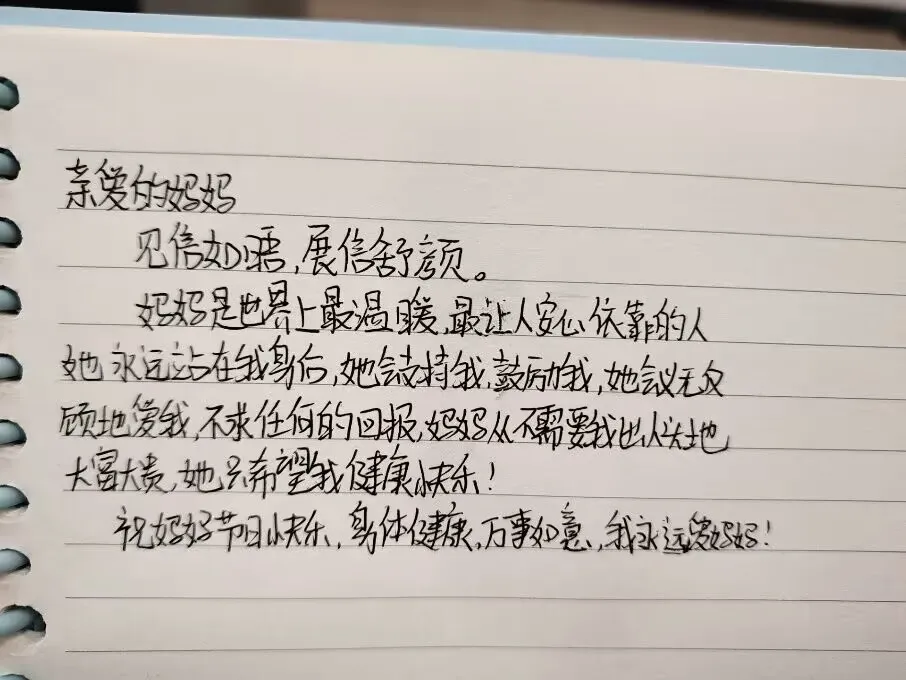 亲爱的妈妈
见信如晤,展信舒颜。
妈妈是世界上最温暖,最让人安心依靠的人
她永远站在我身后,她会支持我,鼓励我,她会义无反
顾地爱我,不求任何的回报,妈妈从不需要我出人头地
大富大贵,她只希望我健康快乐!
祝妈妈节日快乐,身体健康,万事如意,我永远爱妈妈!